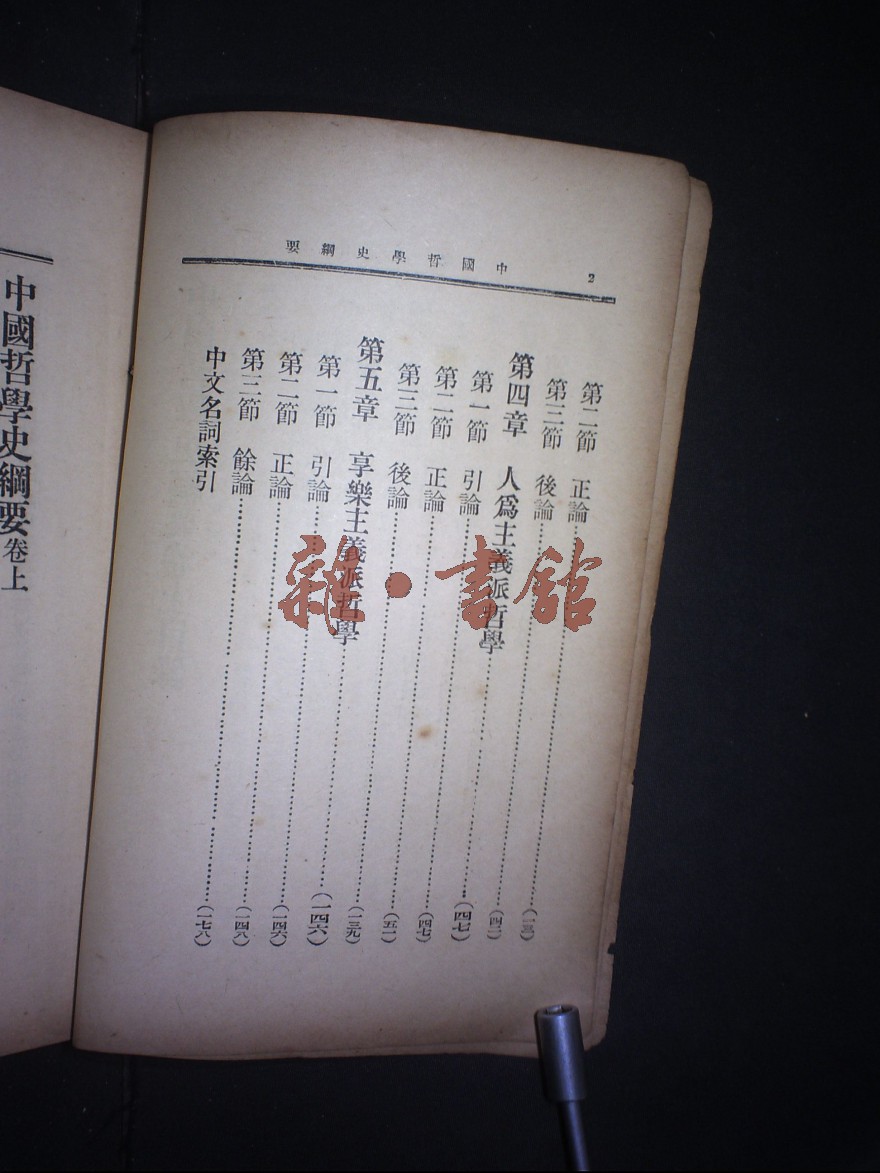 2 中國哲學史綱要
第二節 正論
第三節 後論 (四二)
第四章 人爲主義派哲學 (四七)
第一節 引論 (四七)
第二節 正論 (五一)
第三節 後論 (一三九)
第五章 享樂主義派哲學 (一四六)
第一節 引論 (一四六)
第二節 正論 (一四八)
第三節 餘論 (一七八)
中文名詞索引
中國哲學史綱要卷上
雜·書館